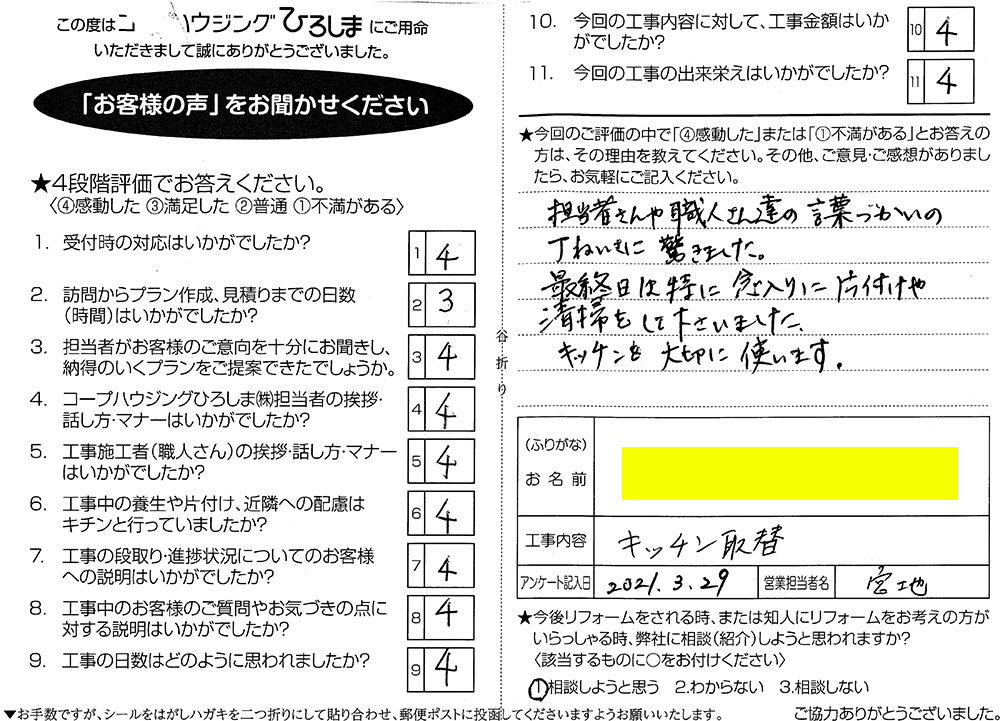 この度はコ ハウジングひろしまにご用命
いただきまして誠にありがとうございました。
「お客様の声」をお聞かせください
★4段階評価でお答えください。
〈④感動した ③満足した ②普通 ①不満がある〉
1. 受付時の対応はいかがでしたか?
1 4
2. 訪問からプラン作成、見積りまでの日数
(時間)はいかがでしたか?
2 3
3. 担当者がお客様のご意向を十分にお聞きし、
納得のいくプランをご提案できたでしょうか。
3 4
4. コープハウジングひろしま㈱担当者の挨拶・
話し方・マナーはいかがでしたか?
4 4
5. 工事施工者(職人さん)の挨拶・話し方・マナー
はいかがでしたか?
5 4
6. 工事中の養生や片付け、近隣への配慮は
キチンと行っていましたか?
6 4
7. 工事の段取り・進捗状況についてのお客様
への説明はいかがでしたか?
7 4
8. 工事中のお客様のご質問やお気づきの点に
対する説明はいかがでしたか?
8 4
9. 工事の日数はどのように思われましたか?
9 4
谷折り
10. 今回の工事内容に対して、工事金額はいか
がでしたか?
10 4
11. 今回の工事の出来栄えはいかがでしたか?
11 4
★今回のご評価の中で「④感動した」または「①不満がある」とお答えの
方は、その理由を教えてください。その他、ご意見・ご感想がありまし
たら、お気軽にご記入ください。
担当者さんや職人さん達の言葉づかいの
丁ねいさに驚きました。
最終日は特に念入りに片付けや
清掃をして下さいました。
キッチンを大切に使います。
(ふりがな)
お名前
工事内容 キッチン取替
アンケート記入日 2021.3.29 営業担当者名 宮地
★今後リフォームをされる時、または知人にリフォームをお考えの方が
いらっしゃる時、弊社に相談(紹介)しようと思われますか?
〈該当するものに○をお付けください〉
1.相談しようと思う 2.わからない 3.相談しない
▼お手数ですが、シールをはがしハガキを二つ折りにして貼り合わせ、郵便ポストに投函してくださいますようお願いいたします。
ご協力ありがとうございました。